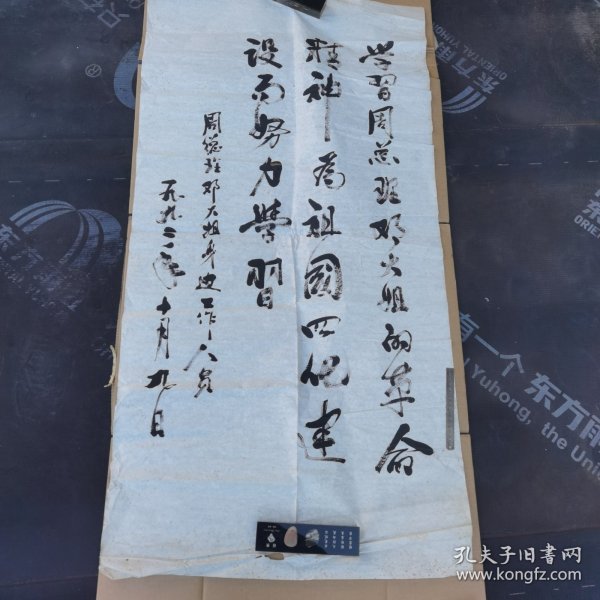 学習周总理邓大姐的革命
精神 为祖國四化建
设而努力學習
周总理邓大姐身边工作人员
一九九二年十月九日
东方雨虹
ORIENTAL YUHONG
有一个 东方雨
Yuhong, the
孔夫子旧书网
www.kongfz.com